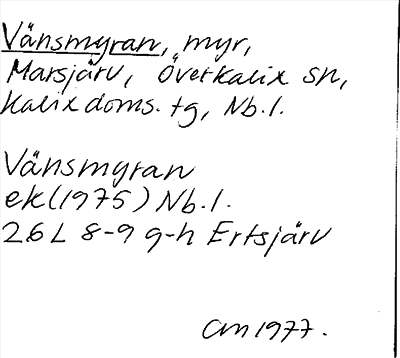 Vänsmyran, myr,
Marsjärv, Överkalix sn,
Kalix doms. tg, Nb. l.
Vänsmyran
ek (1975) Nb. l.
26L 8-9 g-h Ertsjärv
CM 1977.